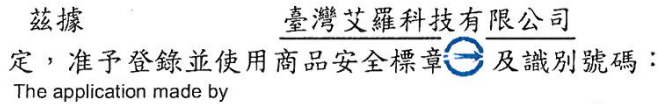 茲據 臺灣艾羅科技有限公司
定，准予登錄並使用商品安全標章及識別號碼：
The application made by